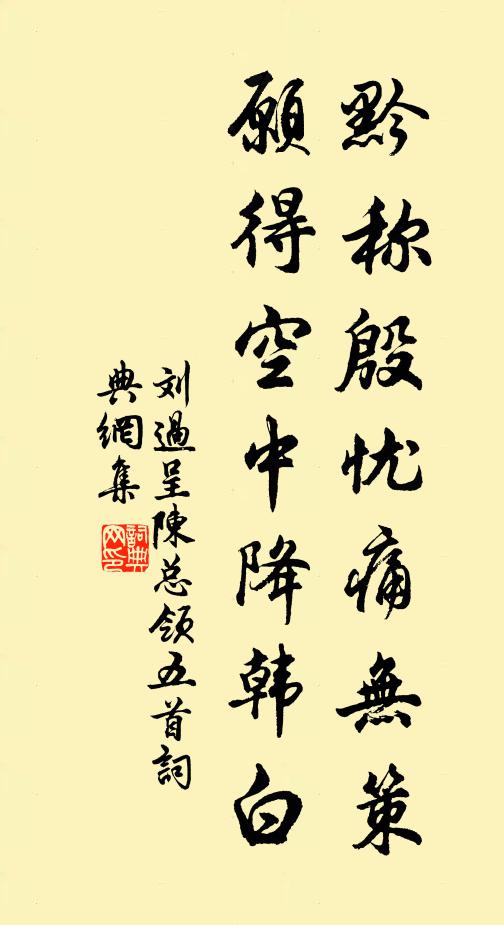 黔称殷忧痛無策
願得空中降韩白
刘過呈陳总领五首詞
典網集
詞典網印